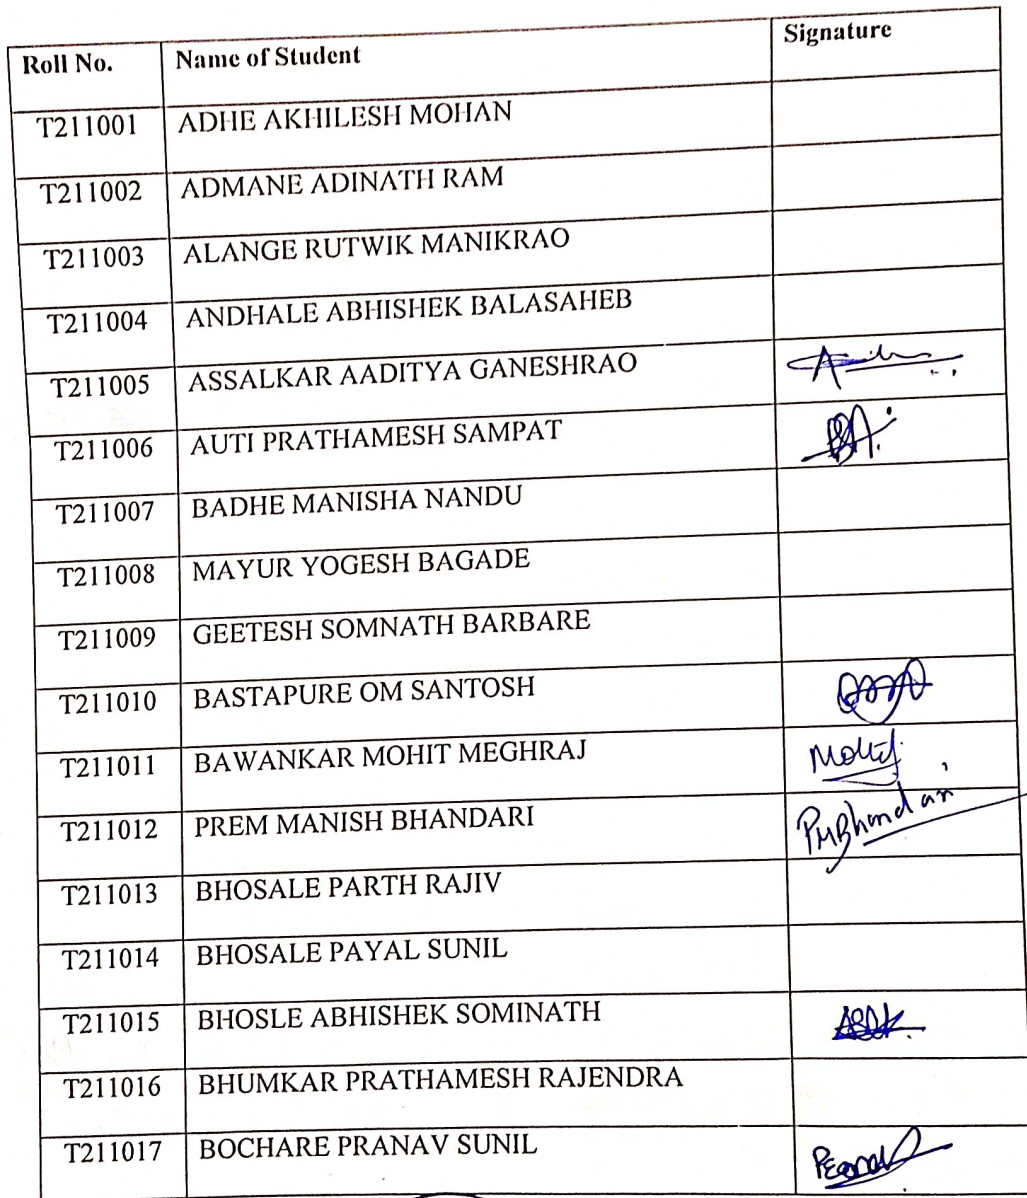 Roll No. Name of Student Signature
T211001 ADHE AKHILESH MOHAN
T211002 ADMANE ADINATH RAM
T211003 ALANGE RUTWIK MANIKRAO
T211004 ANDHALE ABHISHEK BALASAHEB
T211005 ASSALKAR AADITYA GANESHRAO
T211006 AUTI PRATHAMESH SAMPAT
T211007 BADHE MANISHA NANDU
T211008 MAYUR YOGESH BAGADE
T211009 GEETESH SOMNATH BARBARE
T211010 BASTAPURE OM SANTOSH
T211011 BAWANKAR MOHIT MEGHRAJ Mohit
T211012 PREM MANISH BHANDARI PMBhandari
T211013 BHOSALE PARTH RAJIV
T211014 BHOSALE PAYAL SUNIL
T211015 BHOSLE ABHISHEK SOMINATH
T211016 BHUMKAR PRATHAMESH RAJENDRA
T211017 BOCHARE PRANAV SUNIL